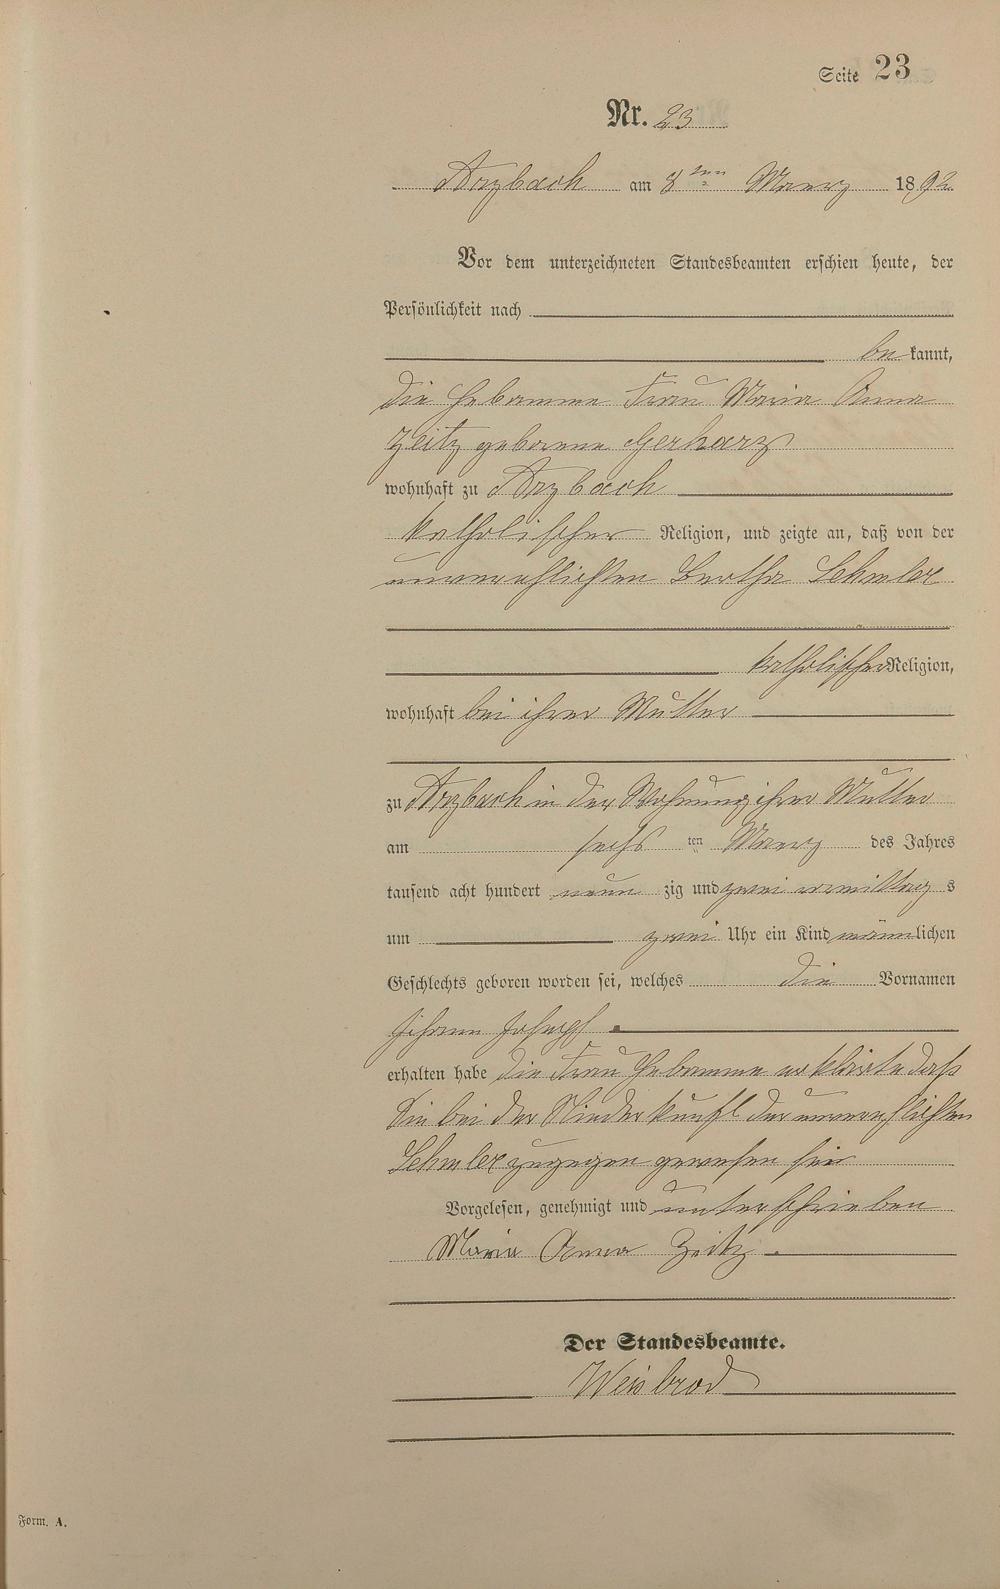 Seite 23
Nr. 23
Arzbach am 8 ten Maerz 1892
Vor dem unterzeichneten Standesbeamten erschien heute, der
Persönlichkeit nach
be kannt,
die Hebamme Frau Maria Anna
Zeitz geborene Gerharz
wohnhaft zu Arzbach
katholischer Religion, und zeigte an, daß von der
unverehlichten Bertha Lehmler
katholischer Religion,
wohnhaft bei ihrer Mutter
zu Arzbach in der Wohnung ihrer Mutter
am sechs ten Maerz des Jahres
tausend acht hundert neun zig und zwei vormittag s
um zwei Uhr ein Kind männlichen
Geschlechts geboren worden sei, welches die Vornamen
Johann Joseph
erhalten habe die Frau Hebamme erklärte daß
Sie bei der Niederkunft der unverehlichten
Lehmler zugegen gewesen sei
Vorgelesen, genehmigt und unterschrieben
Maria Anna Zeitz
Der Standesbeamte.
Weisbrod
Form. A.